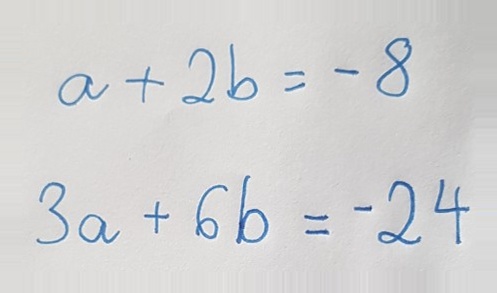 a + 2b = -8
3a + 6b = -24